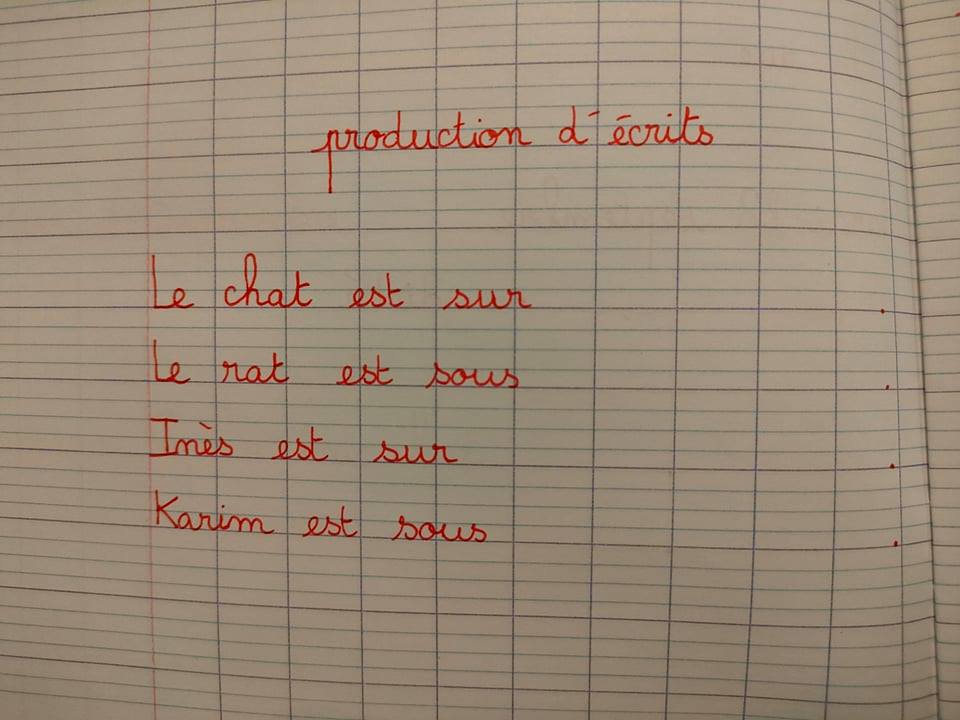 production d'écrits
Le chat est sur .
Le rat est sous .
Inès est sur .
Karim est sous .